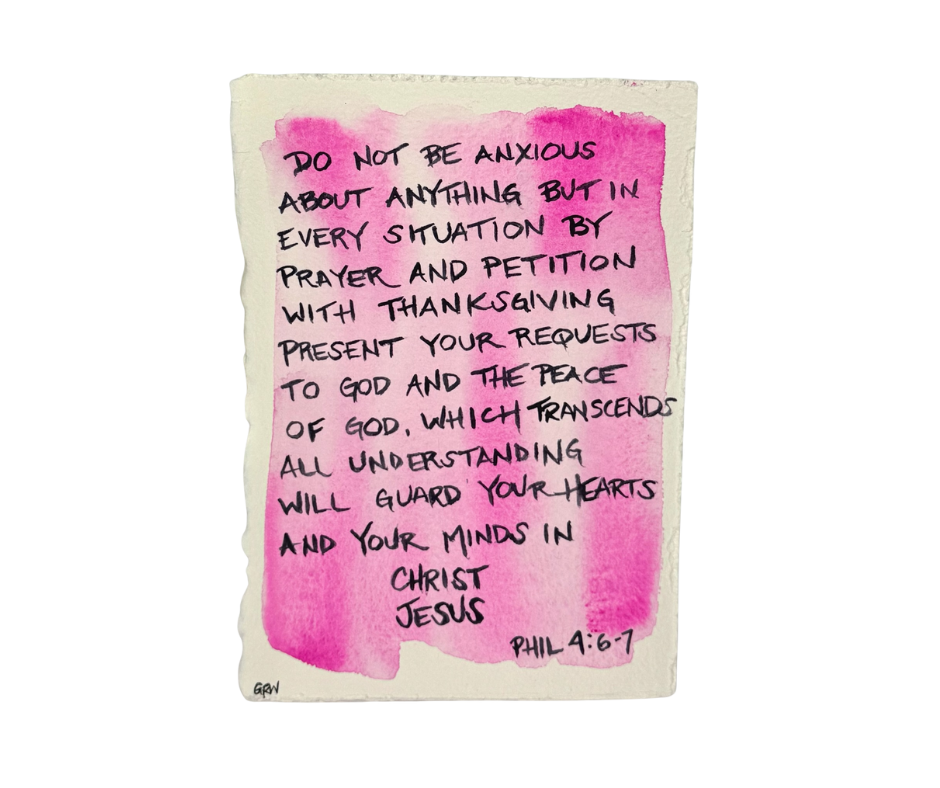 DO NOT BE ANXIOUS
ABOUT ANYTHING BUT IN
EVERY SITUATION BY
PRAYER AND PETITION
WITH THANKSGIVING
PRESENT YOUR REQUESTS
TO GOD AND THE PEACE
OF GOD, WHICH TRANSCENDS
ALL UNDERSTANDING
WILL GUARD YOUR HEARTS
AND YOUR MINDS IN
CHRIST
JESUS
PHIL 4:6-7
GRW